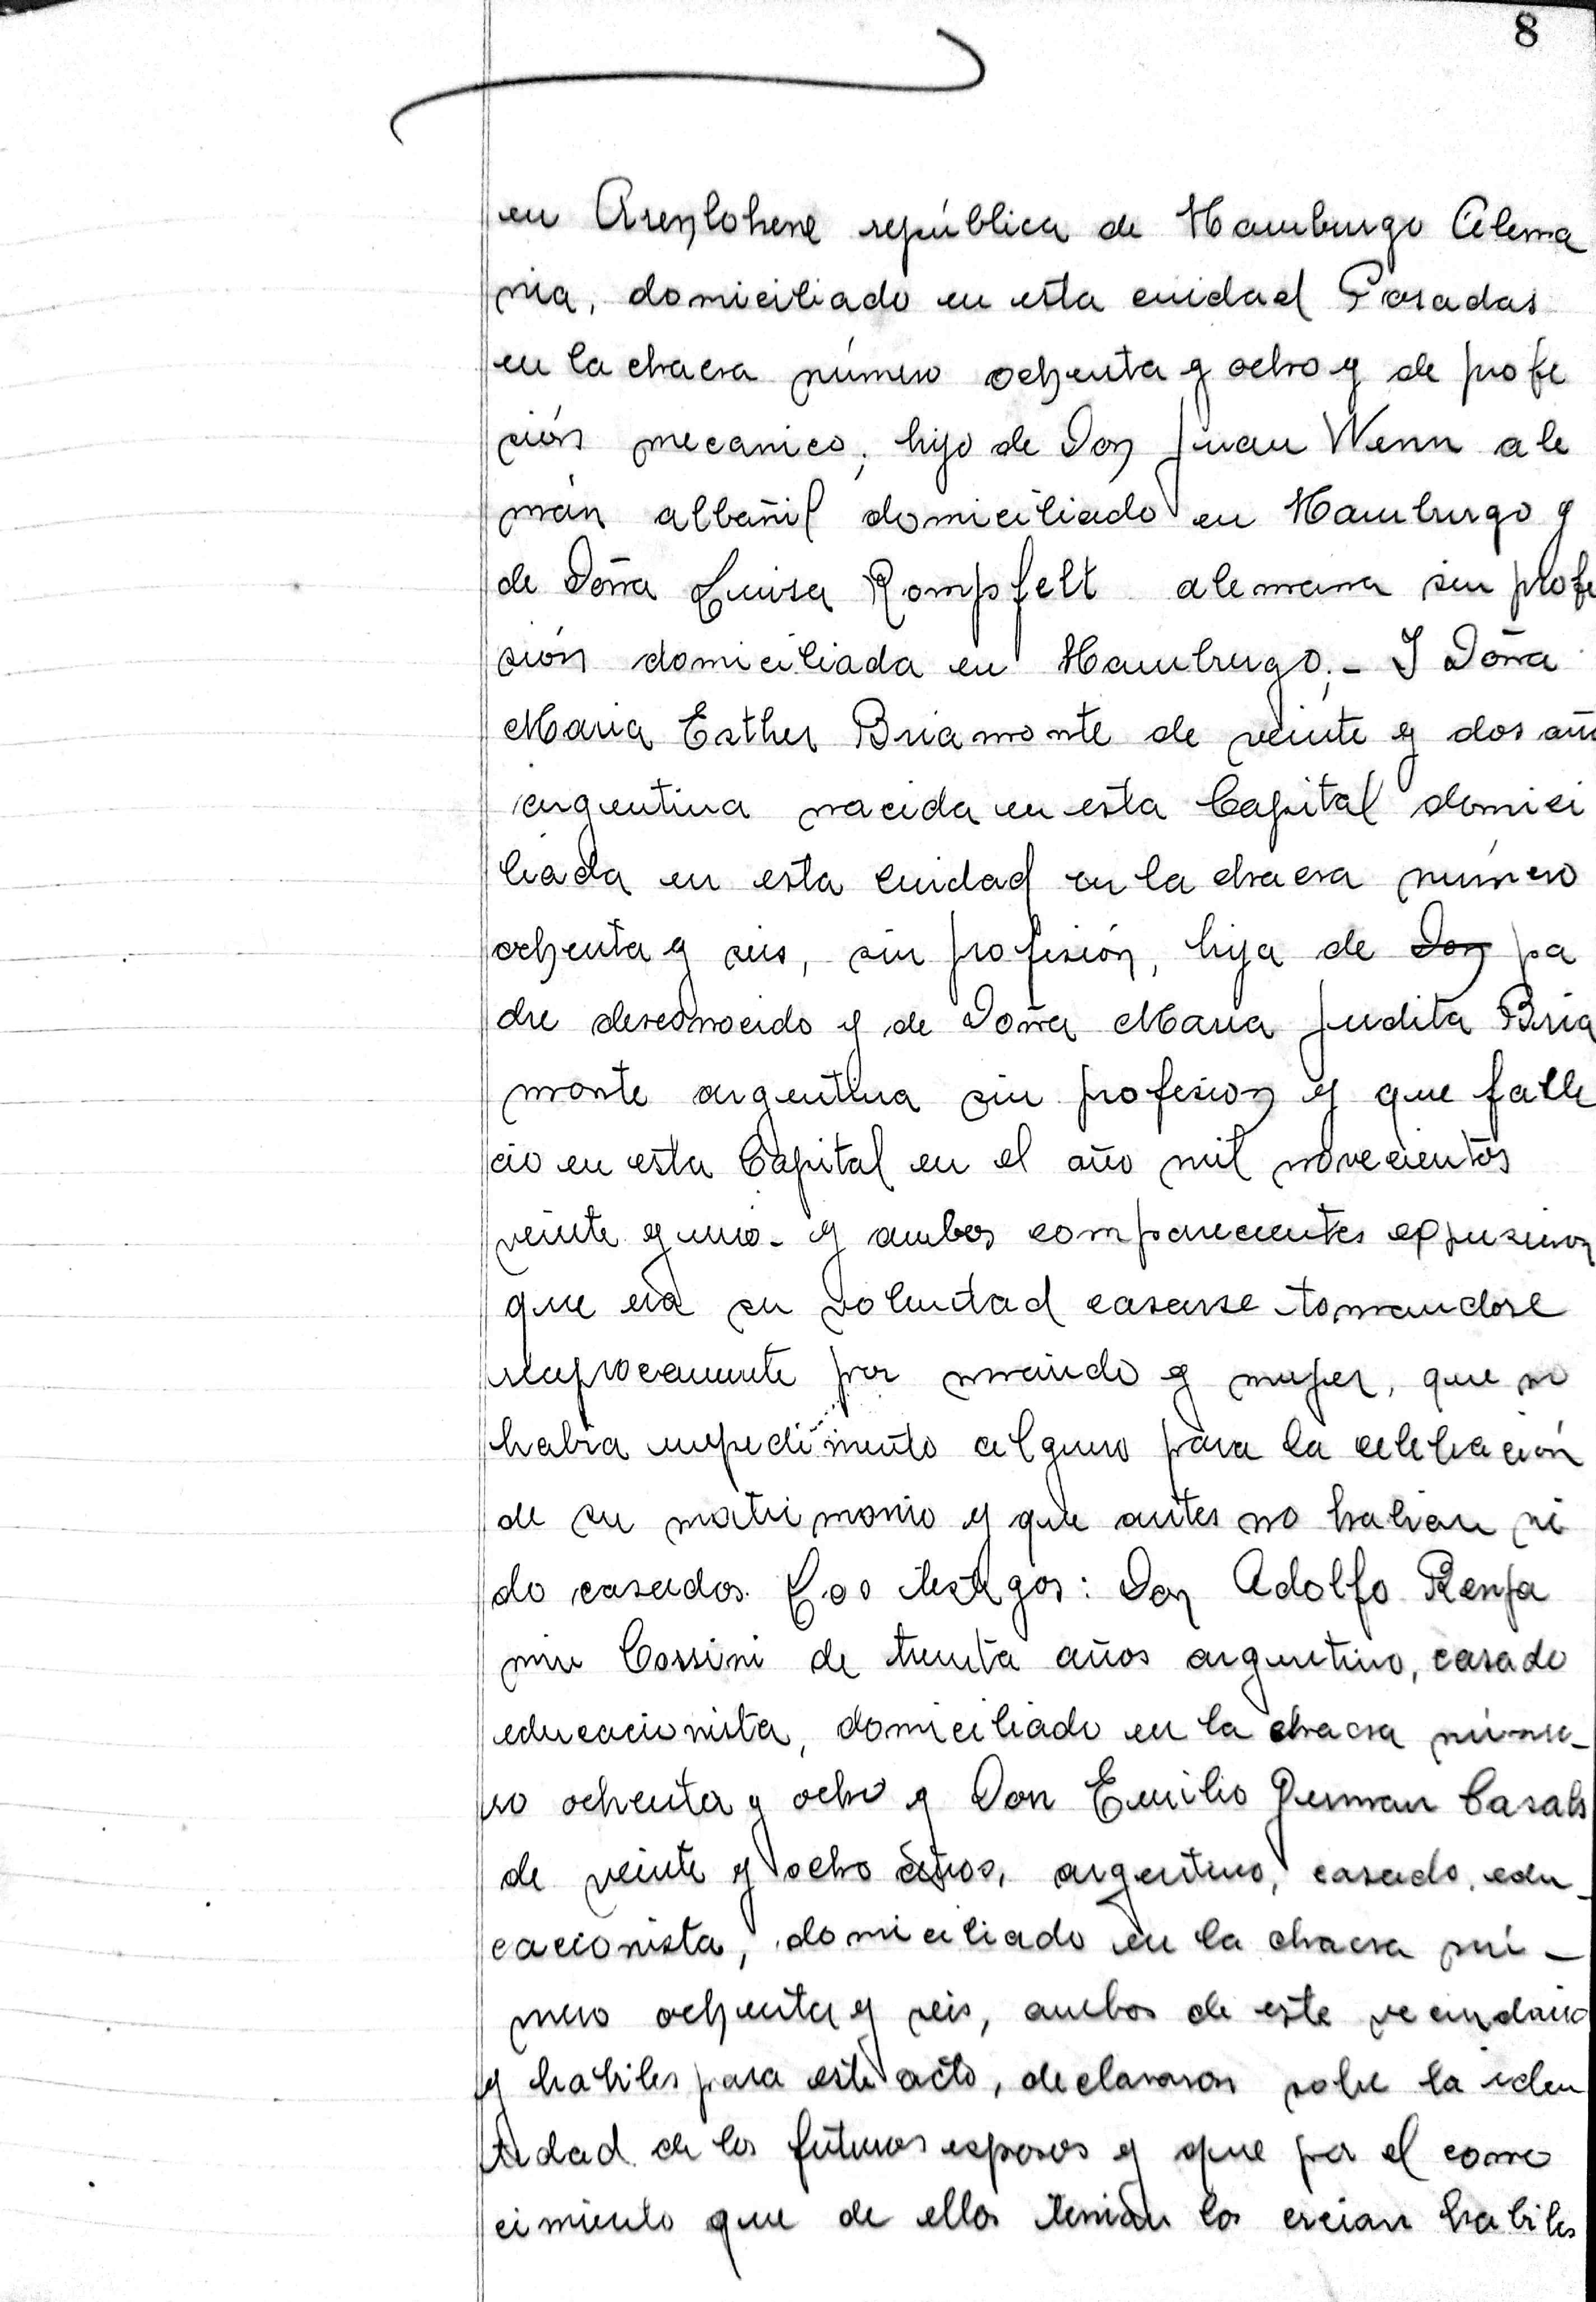 8
en Arenlohene república de Hamburgo Alema
nia, domiciliado en esta cuidad Posadas
en la chacra número ochenta y ocho y de profe
ción mecanico; hijo de Don Juan Wenn ale
mán albañil domiciliado en Hamburgo y
de Doña Luisa Rompfelt alemana sin profe
sión domiciliada en Hamburgo;- Y Doña
Maria Esther Briamonte de veinte y dos añ
argentina nacida en esta Capital domici
liada en esta cuidad en la chacra número
ochenta y seis, sin profesión, hija de Don pa
dre desconocido y de Doña Maria Judita Bria
monte argentina sin profesion y que falle
cio en esta Capital en el año mil novecientos
veinte y uno- y ambos comparecientes expusieron
que era su voluntad casarse tomandose
reciprocamente por marido y mujer, que no
habia impedimento alguno para la celebración
de su matrimonio y que antes no habian si
do casados. Los testigos: Don Adolfo Benja
min Cossini de treinta años argentino, casado
educacionista, domiciliado en la chacra núme-
ro ochenta y ocho y Don Emilio German Casals
de veinte y ocho años, argentino, casado, edu-
cacionista, domiciliado en la chacra nú-
mero ochenta y seis, ambos de este vecindario
y habiles para este acto, declararon sobre la iden
tidad de los futuros esposos y que por el cono
cimiento que de ellos tenian los creian habiles